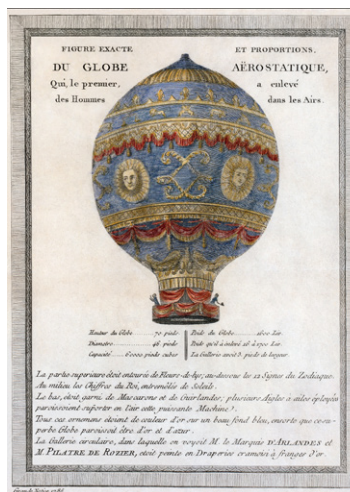 FIGURE EXACTE ET PROPORTIONS,
DU GLOBE AËROSTATIQUE,
Qui, le premier, a enlevé
des Hommes dans les Airs.
Hauteur du Globe 70 pieds
Diametre 46 pieds
Capacité 60000 pieds cubes
Poids du Globe 1600 Liv.
Poids qu'il a enlevé 16 à 1700 Liv.
La Gallerie avoit 3 pieds de largeur.
La partie supérieure étoit entourée de Fleurs-de-lys; au-dessous les 12 Signes du Zodiaque.
Au milieu les Chiffres du Roi, entremêlés de Soleils.
Le bas étoit garni de Mascarons et de Guirlandes, plusieurs Aigles a ailes éployées
paroissoient suporter en l'air cette puissante Machine.
Tous ces ornemens étoient de couleur d'or sur un beau fond bleu, ensorte que ce su-
perbe Globe paroissoit être d'or et d'azur.
La Gallerie circulaire, dans laquelle on voyoit M. le Marquis D'ARLANDES et
M. PILATRE DE ROZIER, étoit peinte en Draperies cramoisi à franges d'or.